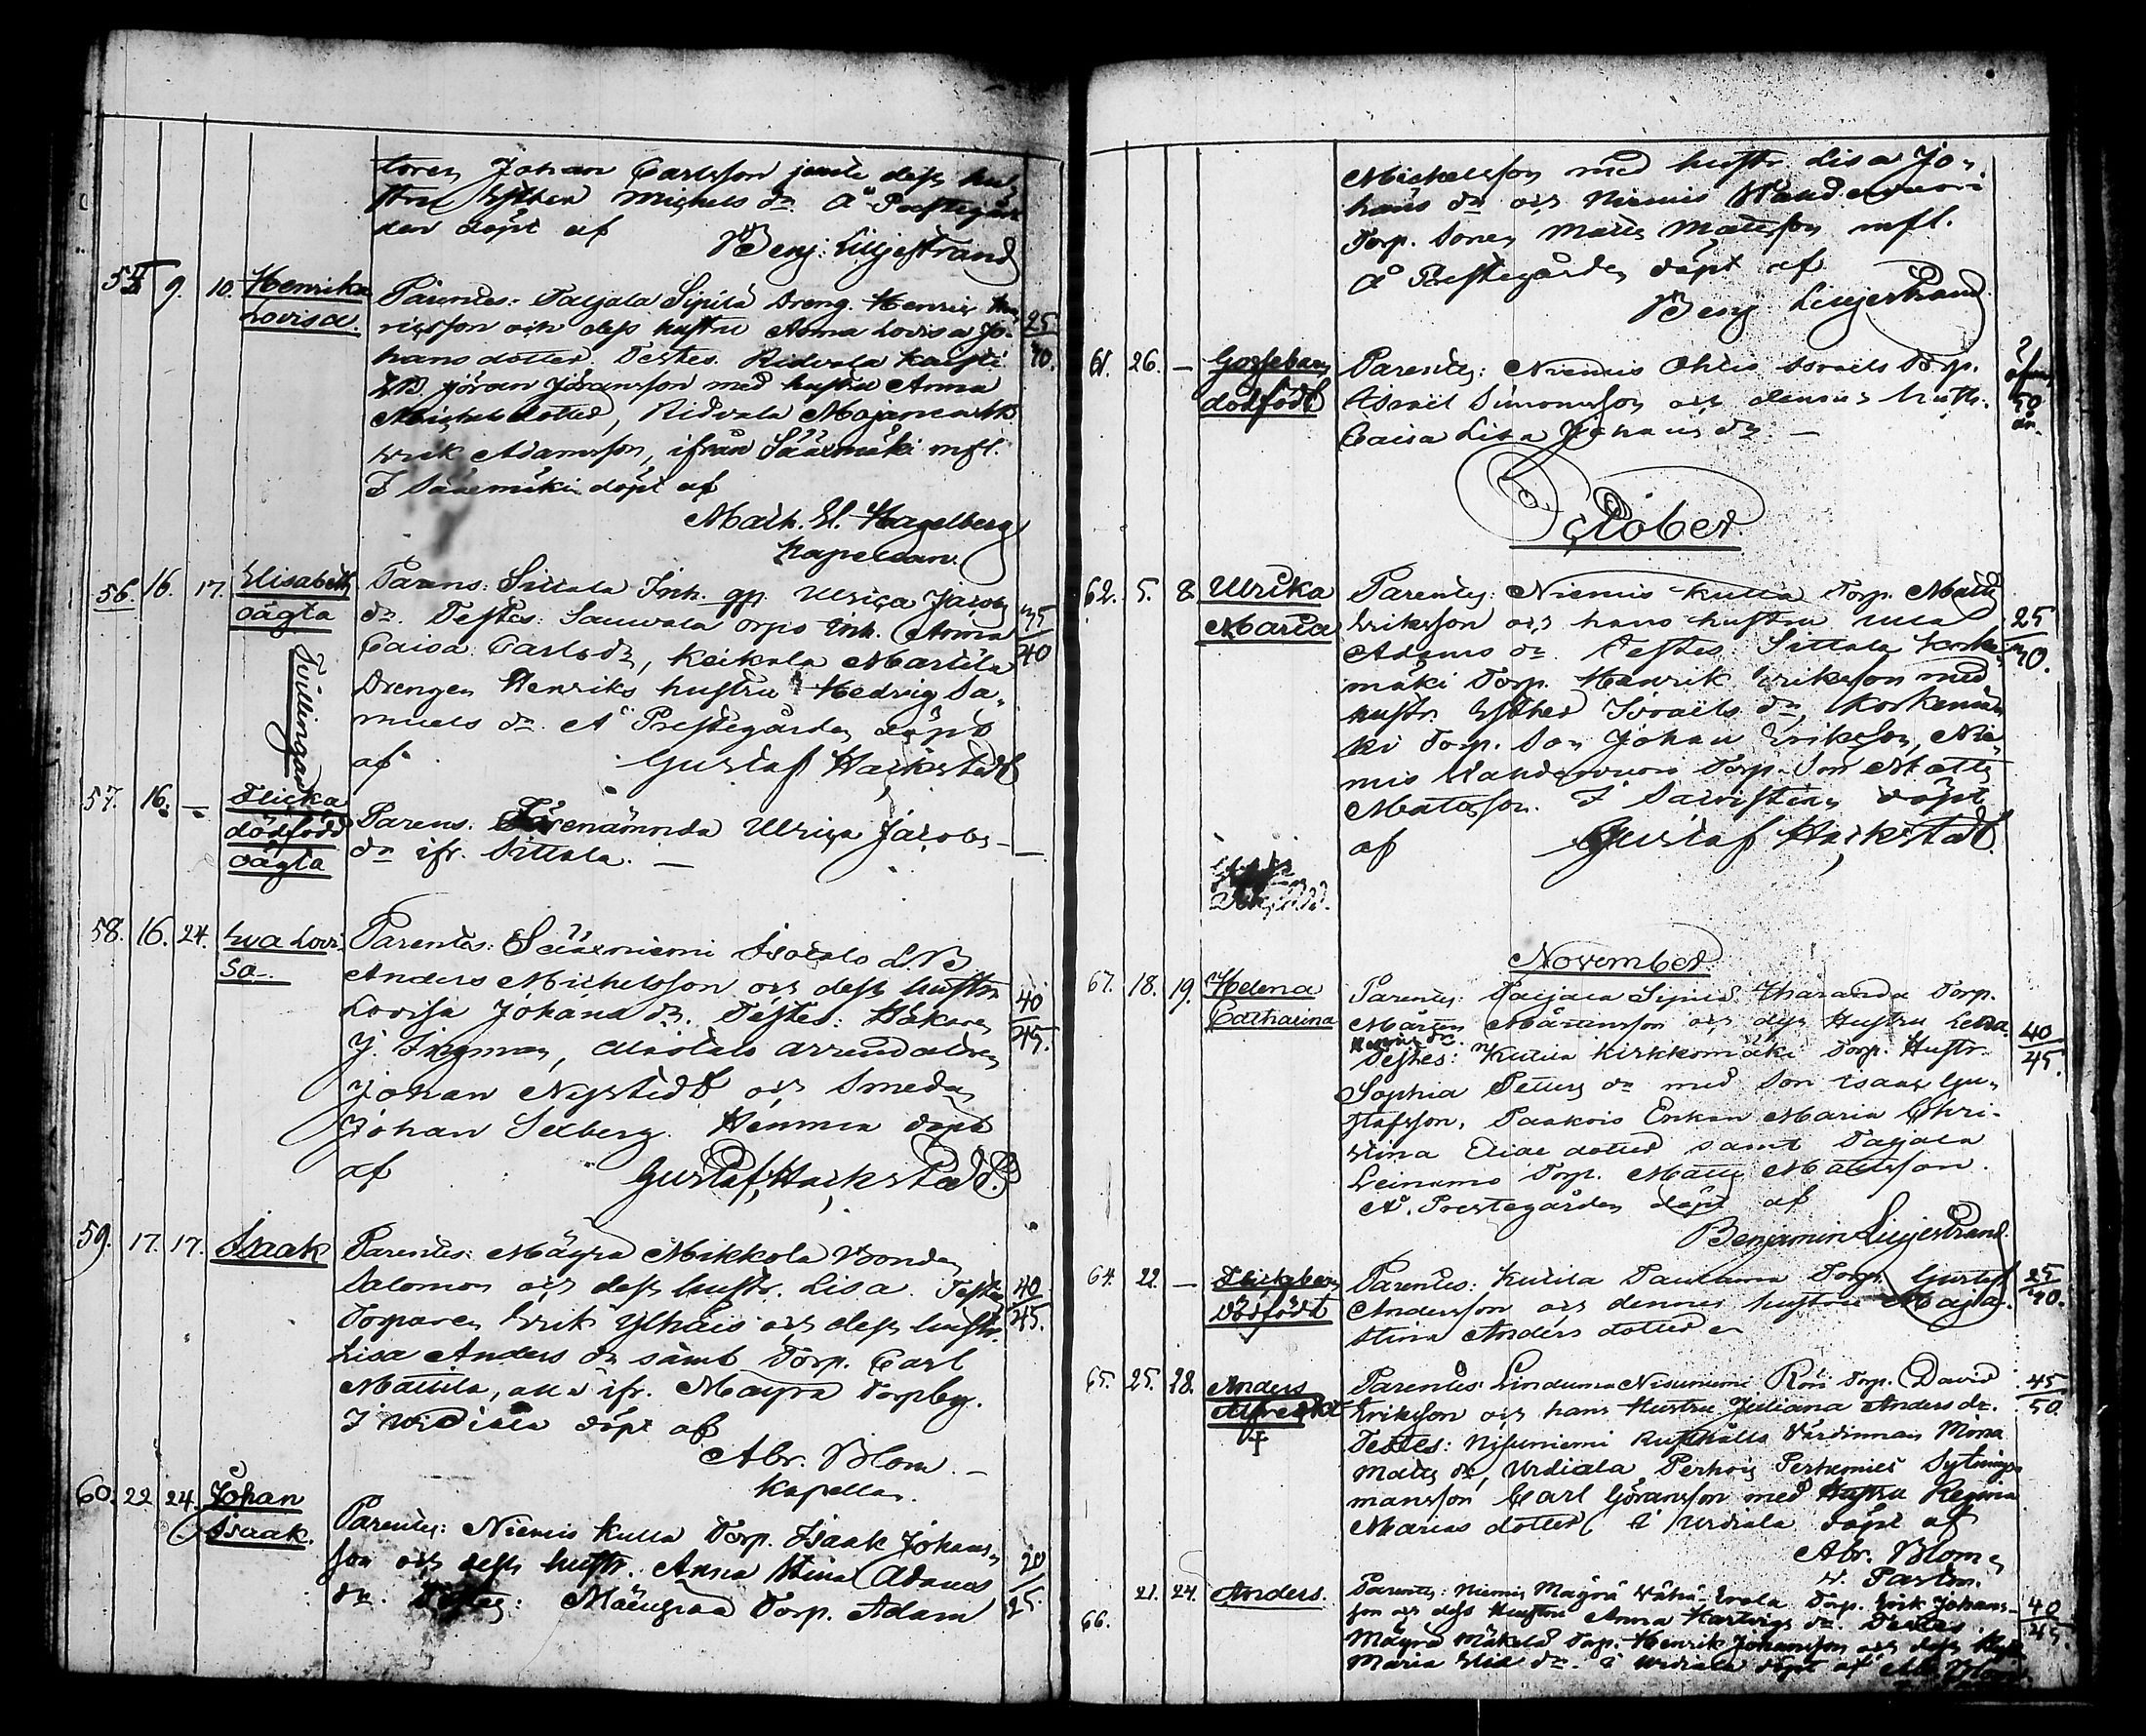 toren Johan Carlsson jemte dess hu-
stru Esther Michels dr. Å Prestegår-
den döpt af
Benj: Liljestrand
55 9. 10. Henrika Parentes: Taljala Sipilä Dreng. Henric Hen-
Lovisa. ricsson och dess hustru Anna Lovisa Jo- 25
hans dotter. Testes. Ridvala Kaisti 30.
LB Jöran Jöransson med hustru Anna
Michels dotter, Ridvala
Erik Adamsson, ifrån Sääxmäki mfl.
I Sääxmäki döpt af
Math. El. Hagelberg
Kapellan.
56. 16. 17. Elisabeth Parens: Sittala Inh. qp. Ulrica Jacobs
oägta dr. Testes: Sauvala Inh. Anna 35
Caisa Carls dr, Keikala Marttila 40
Drengen Henriks hustru Hedvig Sa-
muels dr. Å Prestegården döpt
af Gustaf Hackstedt
Tvillingar
57. 16. — Flicka
dödfödd Parens: Förenämnda Ulrica Jacobs
oägta dr ifr. Sittala. — —
58. 16. 24. Eva Lovi- Parentes: Sääxniemi Isotalo LB
sa. Anders Michelsson och dess hustru
Lovisa Johans dr. Testes: 40
J. Ingman, Alistalo Arrendatoren 45.
Johan Nystedt och Smeden
Johan Seeberg. Hemma döpt
af Gustaf Hackstedt.
59. 17. 17. Isaak Parentes: Mäyrä Mikkola Bonden
Salomon och dess hustr. Lisa. Testes 40
Torparen Erik Ylhäis och dess hustr. 45.
Lisa Anders dr samt Torp. Carl
Mattila, alla ifr. Mäyrä Torpby.
I Urdiala döpt af
Abr. Blom. —
Kapellan.
60. 22 24. Johan
Isaak. Parentes: Niemis Kulla Torp. Isaak Johans-
son och dess hustr. Anna Stina Adams 20
dr. Testes: Torp. Adam 25.
Mickelsson med hustr. Lisa Jo-
hans dr och Niemis Wandenvuori
Torp. Sonen Matts Mattsson mfl.
Å Prestegården döpt af
Benj Liljestrand.
61. 26. — Gossebarn Parentes: Niemis Ohlis Israels Torp.
dödfödt Israel Simonsson och dennes hustr. 50
Caisa Lisa Johans dr — år.
October
62. 5. 8 Ulrika Parentes: Niemis Kulla Torp. Matts
Maria Eriksson och hans hustru Ulla 25
Adams dr. Testes Sittala Korke- 30.
mäki Torp. Henrik Eriksson med
hustr. Esther Israels dr, Korkemä-
ki Torp. Son Johan Eriksson, Nie-
mis Wandenvuori Torp. Son Matts
Mattsson. I Sacristian döpt
af Gustaf Hackstedt.
November
67. 18. 19. Helena Parentes: Taljala Sipilä Torp.
Catharina Mårten Mårtensson och dess Hustru Lena 40
Testes: Kulila Kirkkomäki Torp. Hustr. 45.
Sophia Petters dr med Son Isaac Gu-
stafsson, Enkan Maria Chri-
stina Elias dotter samt Taljala
Leinamo Torp. Matts Mattsson.
Å Prestegården döpt af
Benjamin Liljestrand.
64. 22. — Flickebarn Parentes: Kulila Torp. Gustaf 25
Dödfödt Andersson och dennes hustru Maja 30.
Stina Anders dotter
65. 25. 28. Anders Parentes: Torp. David 45
Alfred Eriksson och hans Hustru Juliana Anders dr. 50
† Testes: Rusthålls Värdinnan
Matts dr, Urdiala
Carl Göransson med Hustru Regina
Marias dotter i Urdiala döpt af
Abr. Blom
v. Pastor.
66. 21. 24. Anders. Parentes: Niemis Mäyrä Torp. Erik Johans-
son och dess Hustru Anna Hartvigs dr. Testes. 40
Mäyrä Mäkelä Torp. Henrik Johansson och dess 45.
Maria dr. i Urdiala döpt af Abr. Blom.